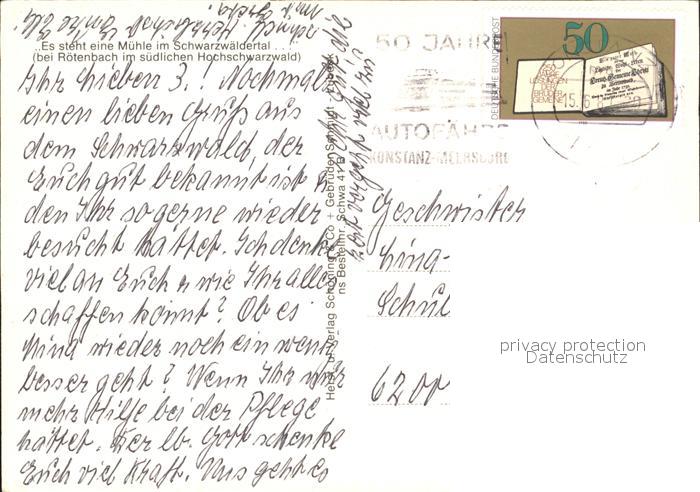 „Es steht eine Mühle im Schwarzwäldertal . . .“
(bei Rötenbach im südlichen Hochschwarzwald)
Ihr Lieben 3! Nochmals
einen lieben Gruß aus
dem Schwarzwald, der
Euch gut bekannt ist u.
den Ihr so gerne wieder
besucht hättet. Ich denke
viel an Euch u. wie Ihr alles
schaffen könnt? Ob es
Nina wieder noch ein wenig
besser geht? Wenn Ihr nur
mehr Hilfe bei der Pflege
hättet. Der lb. Gott schenke
Euch viel Kraft. Uns geht es
Zeit vergeht viel zu
Verlag Schöning & Co + Gebrüder Schmidt
Bestellnr. Schwa 41
50 JAHRE
AUTOFÄHRE
KONSTANZ-MEERSBURG
15.6
DEUTSCHE BUNDESPOST
50
250
JAHRE
LOSUNGEN
DER
BRÜDER-
GEMEINE
Geschwister
Lina-
Schul
6200
privacy protection
Datenschutz